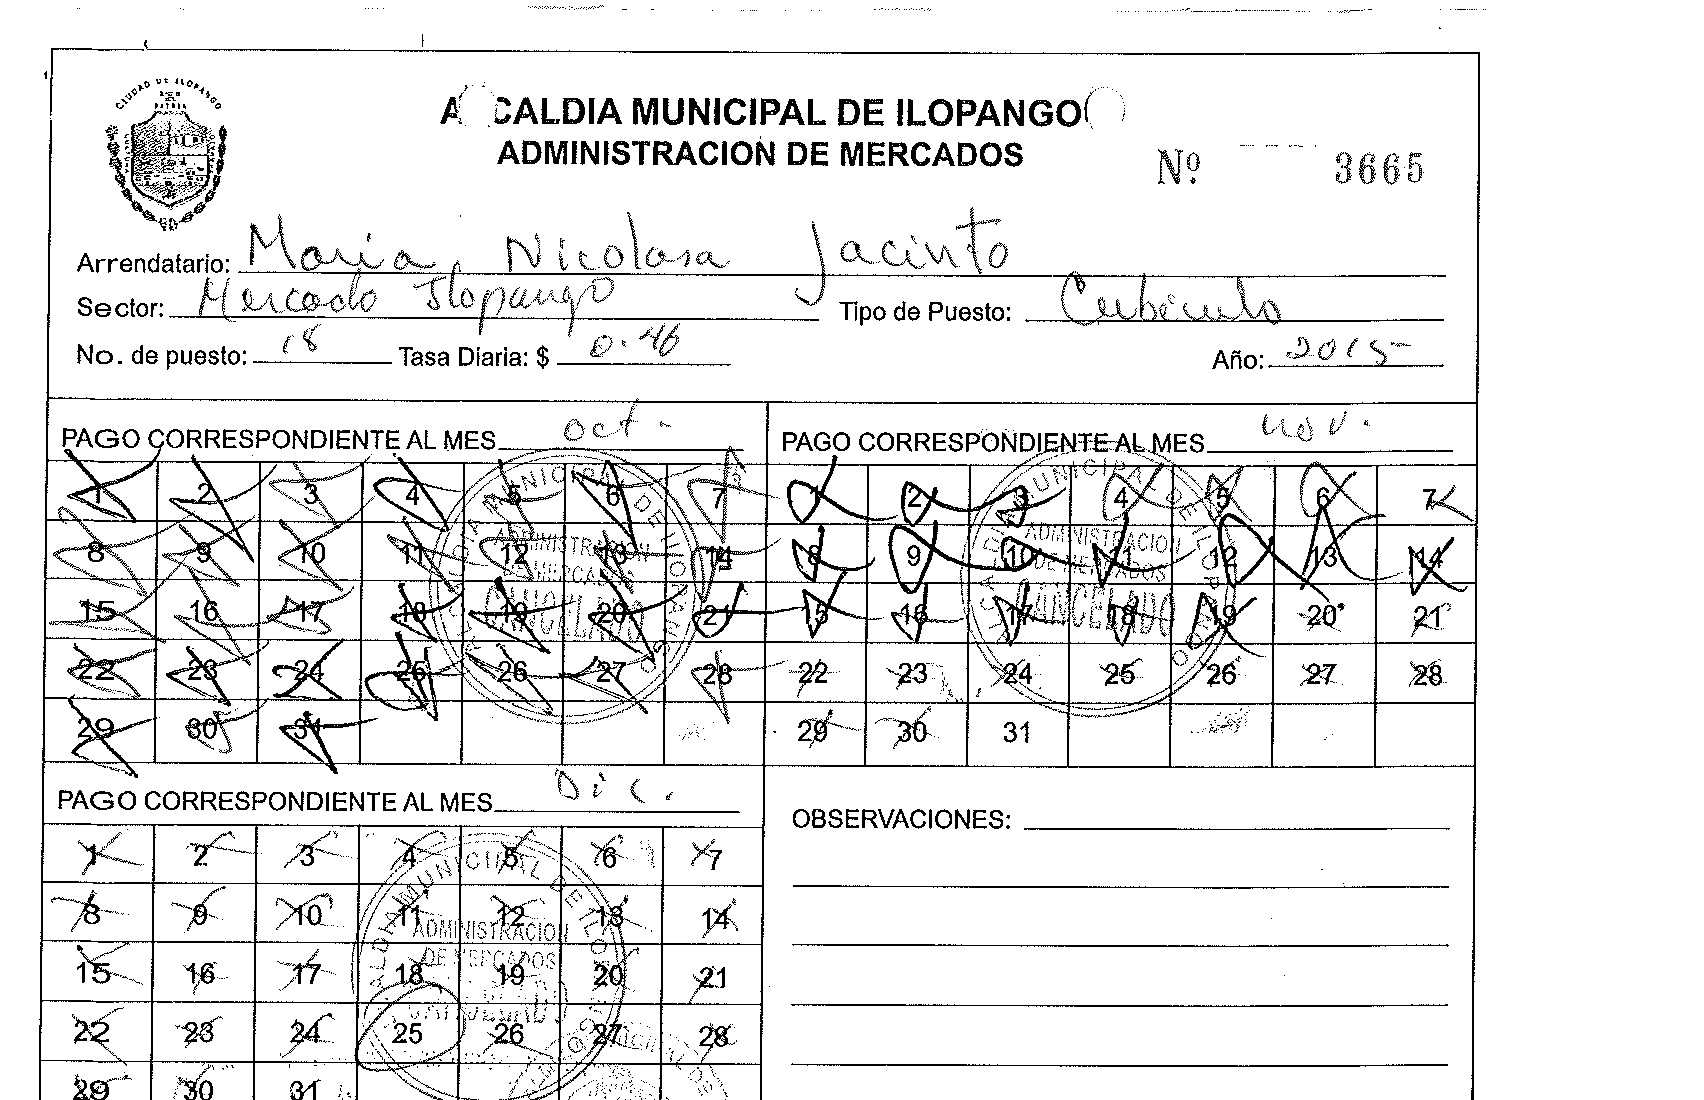 CIUDAD DE ILOPANGO
A CALDIA MUNICIPAL DE ILOPANGO
ADMINISTRACION DE MERCADOS
Nº 3665
Arrendatario: Maria Nicolasa Jacinto
Sector: Mercado Ilopango Tipo de Puesto: Cubiculo
No. de puesto: 18 Tasa Diaria: $ 0.46 Año: 2015
PAGO CORRESPONDIENTE AL MES oct.
1 2 3 4 5 6 7
8 9 10 11 12 13 14
15 16 17 18 19 20 21
22 23 24 25 26 27 28
29 30 31
MUNICIPAL DE ILOPANGO
ADMINISTRACION
DE MERCADOS
CANCELADO
PAGO CORRESPONDIENTE AL MES nov.
1 2 3 4 5 6 7
8 9 10 11 12 13 14
15 16 17 18 19 20 21
22 23 24 25 26 27 28
29 30 31
ALCALDIA MUNICIPAL DE ILOPANGO
ADMINISTRACION
DE MERCADOS
CANCELADO
PAGO CORRESPONDIENTE AL MES Dic.
1 2 3 4 5 6 7
8 9 10 11 12 13 14
15 16 17 18 19 20 21
22 23 24 25 26 27 28
29 30 31
ALCALDIA MUNICIPAL DE ILOPANGO
ADMINISTRACION
DE MERCADOS
CANCELADO
OBSERVACIONES: